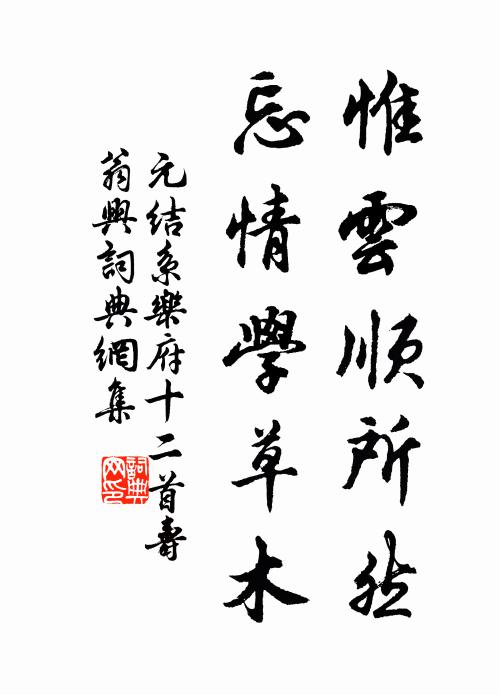 惟雲順所然
忘情學草木
元結系樂府十二首壽
翁興詞典網集
詞典網印